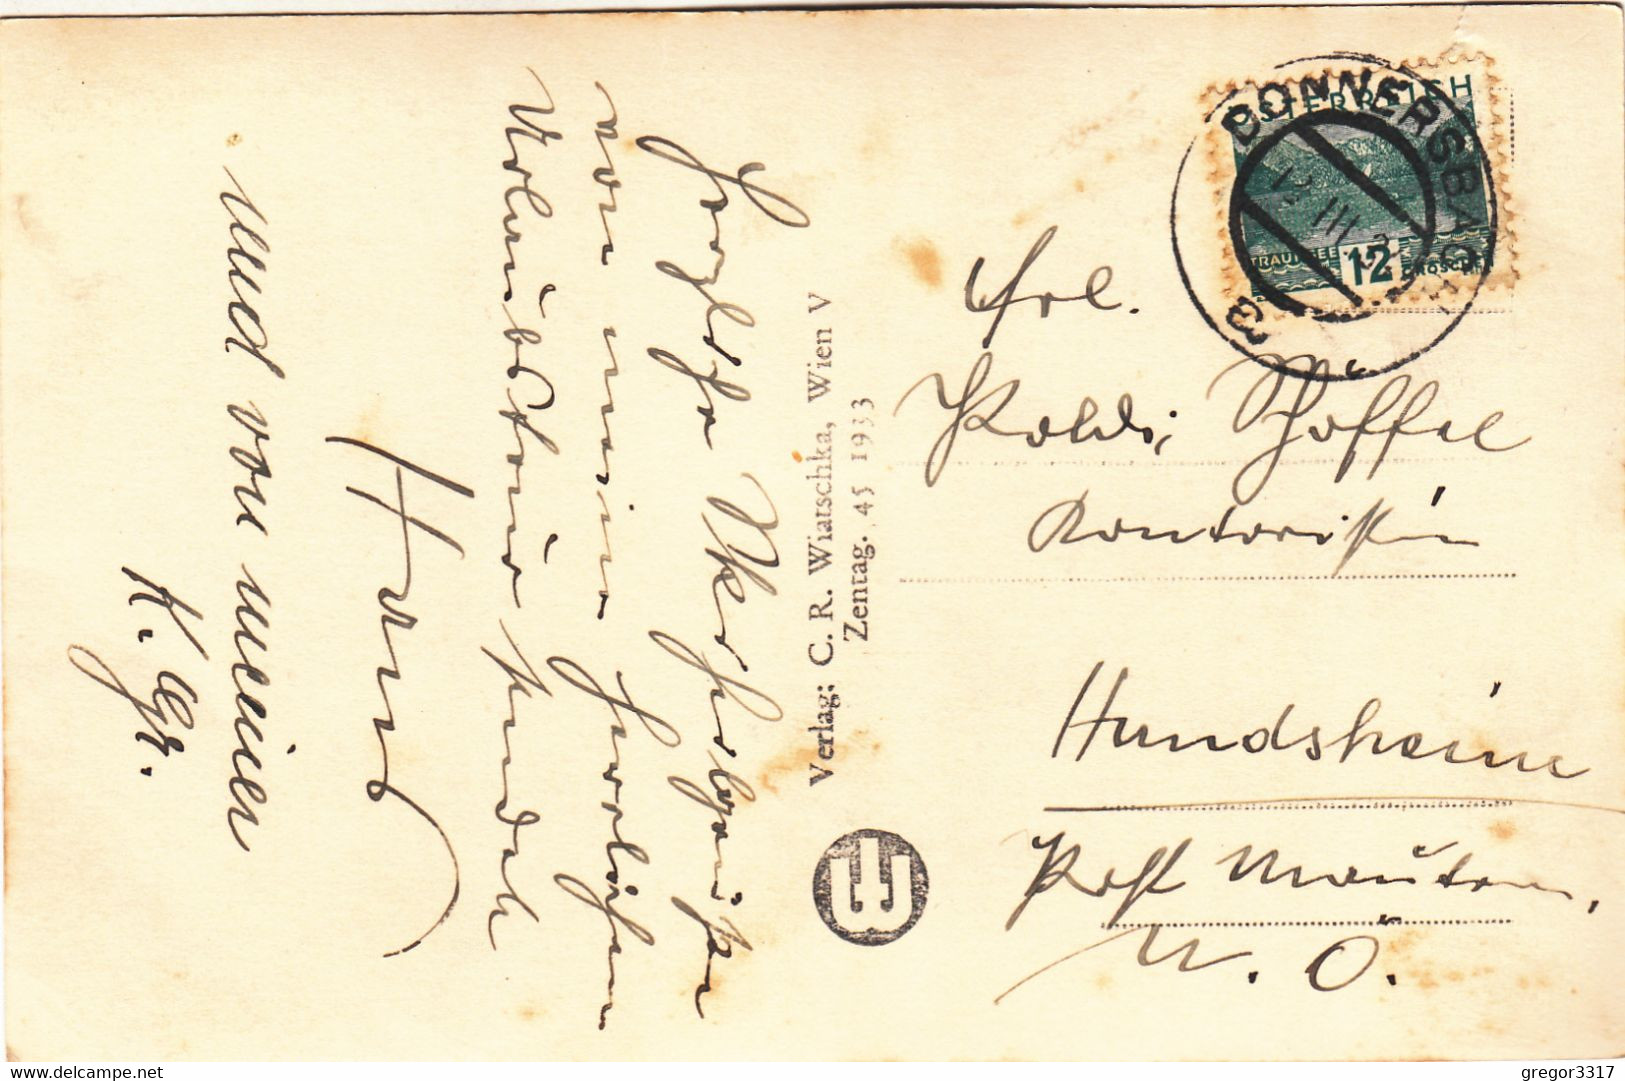 Herzliche
von meiner herrlichen
Urlaubstour sendet
Hans
und von meiner
K. Gr.
Verlag: C. R. Wiatschka, Wien V
Zentag. 45 1933
ÖSTERREICH
TRAUNSEE 12 GROSCHEN
DONNERSBACH
Frl.
Poldi Höffel
Kontoristin
Hundsheim
Post Mautern,
N. Ö.
delcampe.net
gregor3317